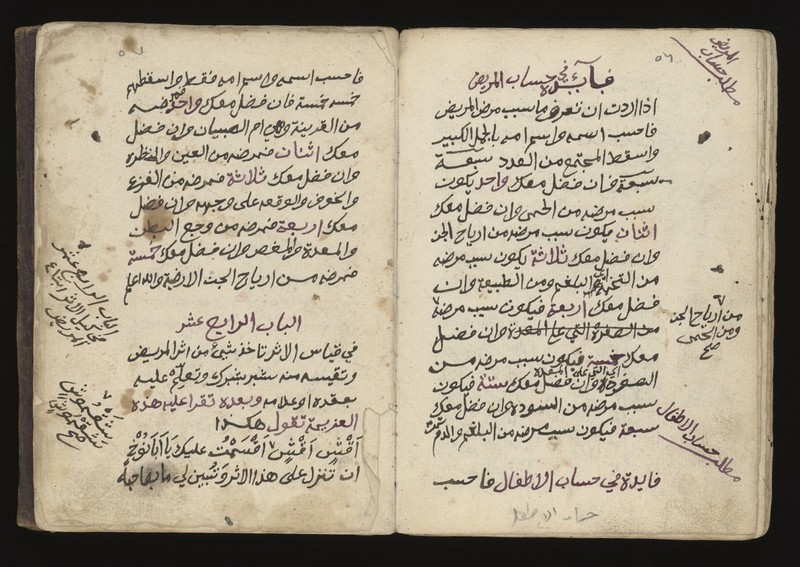 ٥٦
مطلب حساب
المريض
فايدة في حساب المريض
اذا اردت ان تعرف ما سبب مرض المريض
فاحسب اسمه واسم امه بالجمل الكبير
واسقط المجتمع من العدد سبعة
سبعة فان فضل معك واحد يكون
سبب مرضه من الحمى وان فضل معك
اثنان يكون سبب مرضه من ارياح الجن
وان فضل معك ثلاثة يكون سبب مرضه
من البلغم ومن الطبيعة وان
فضل معك اربعة فيكون سبب مرضه
من الصفرة التي على المعدة وان فضل
معك خمسة فيكون سبب مرضه من
وان فضل معك ستة فيكون
سبب مرضه من السودة وان فضل معك
سبعة فيكون سبب مرضه من البلغم والدم
من ارياح الجن
ومن الحمى
صح
مطلب حساب الاطفال
فايدة في حساب الاطفال فاحسب
حساب الاطفال
فاحسب اسمه واسم امه فقط واسقطهم
خمسه خمسة فان فضل معك واحد فمرضه
من القرينة وهي ام الصبيان وان فضل
معك اثنان فمرضه من العين والنظرة
وان فضل معك ثلاثة فمرضه من الفزع
والخوف والوقعه على وجهه وان فضل
معك اربعة فمرضه من وجع البطن
والمعدة والمغص وان فضل معك خمسة
فمرضه من ارياح الجن الارضية والله اعلم
الباب الرابع عشر
في قياس الاثر تاخذ شيئ من اثر المريض
وتقيسه منه بشبر بشبرك وتعلم عليه
بعقده او علامه وبعده تقرا عليه هذه
العزيمة تقول هكذا
اقش اقش اقسمت عليك يا ابانوخ
ان تنزل على هذا الاثر وتبين لي ما بصاحبه
الباب الرابع عشر
في قياس الاثر
المريض
صح